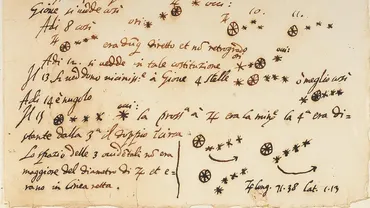 Gione si vedde così
Adi 8 così ori: 10. 11.
era dunq diretto et nō retrogrado
Adi 12. si vedde in tale costituzione
Il 13. si veddono vicinissᵉ à Gione 4 stelle ò meglio così
Adi 14 è nugolo
Il 15 occ: la prossᵃ à ♃ era la minᵉ la 4ᵃ era di-
stante dalla 3ᵃ il doppio circa
Lo spazio delle 3 occidētali nō era
maggiore del diametro di ♃ et e-
rano in linea retta.
♃ long. 71.38 lat. 1.13